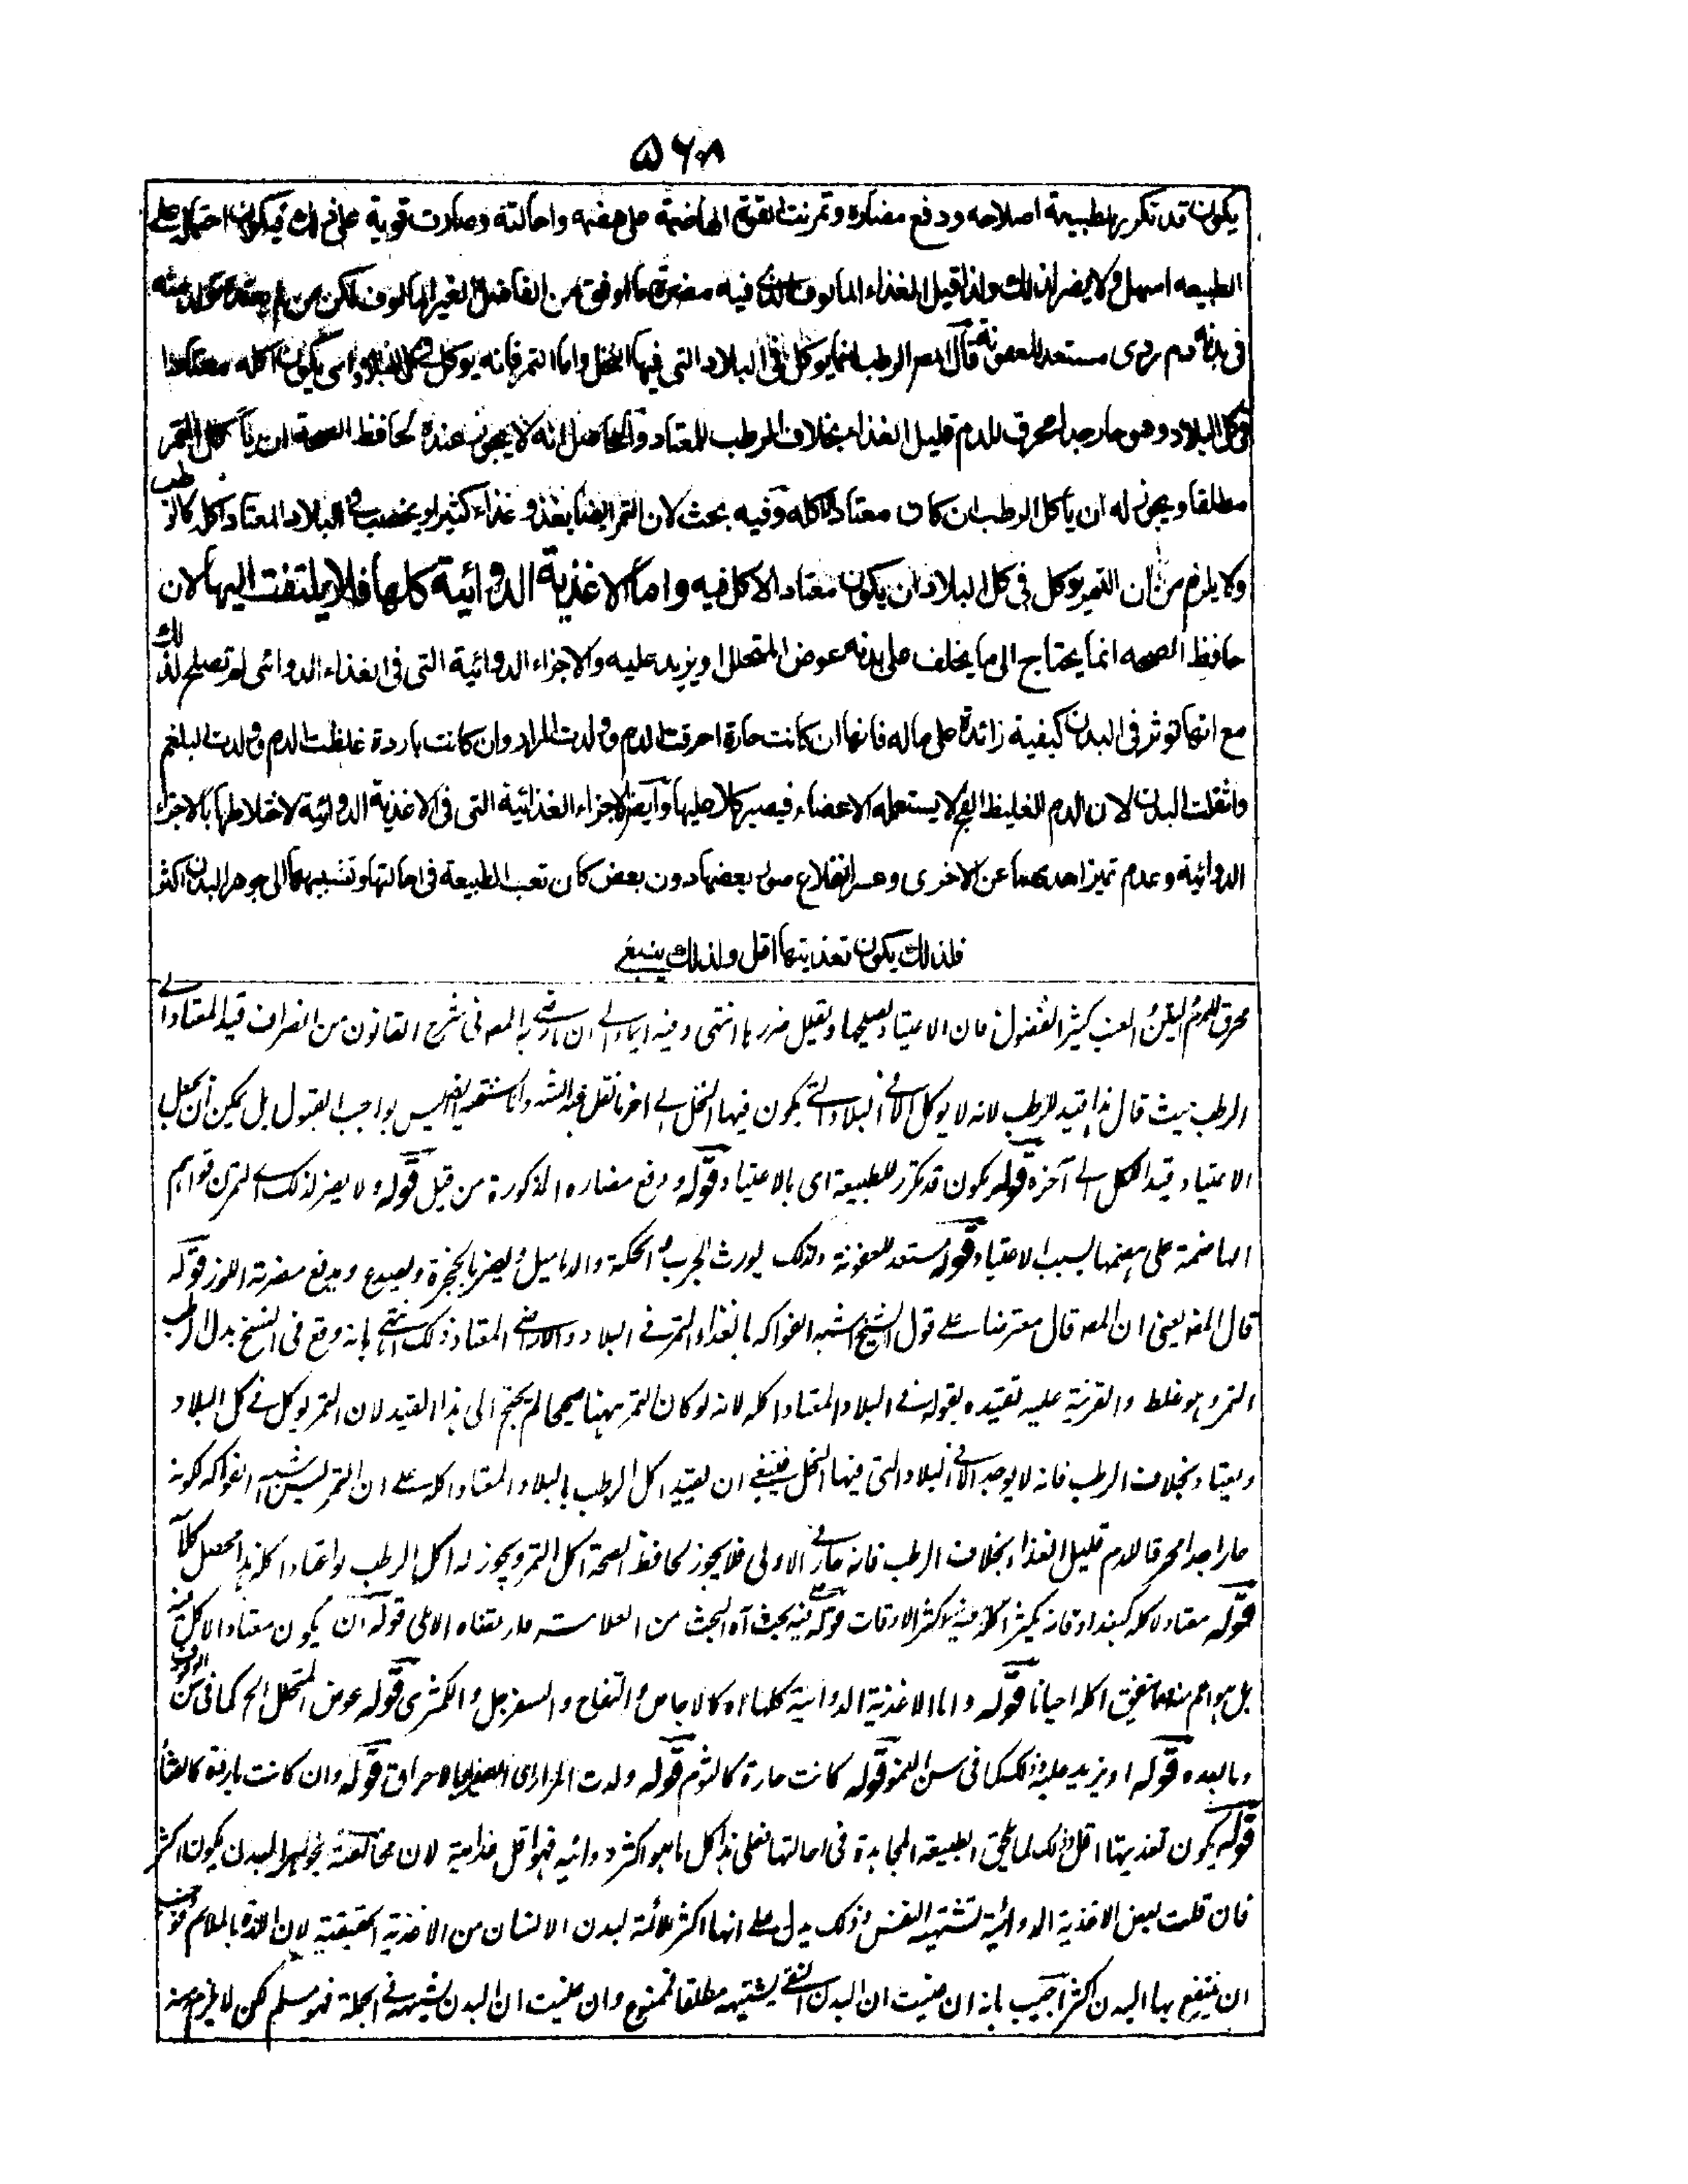 ۵۶۸
يكون قد تكرر للطبيعة اصلاحه ودفع مضاره وتمرنت القوة الهاضمة على هضمه واحالته وصارت قوية على ذلك فيكون احتماله على
الطبيعه اسهل ولا يضر لذلك ولذا قيل الغذاء المالوف الذى فيه مضرة ما اوفق من الفاضل الغير المالوف لكن من لم يعتده تولد منه
فى بدنه دم ردى مستعد للعفونة قال المصر الرطب انما يوكل فى البلاد التى فيها النخل واما التمر فانه يوكل فى كل البلاد اى يكون اكله معتادا
فى كل البلاد وهو حار جدا محرق للدم قليل الغذاء بخلاف الرطب للمعتاد والحاصل انه لا يجوز عنده لحافظ الصحة ان ياكل التمر
مطلقا ويجوز له ان ياكل الرطب ان كان معتادا لاكله وفيه بحث لان التمر ايضا يغذو غذاء كثيرا ويخصب فى البلاد المعتاد اكله كالرطب
ولا يلزم من ان التمر يوكل فى كل البلاد ان يكون معتاد الاكل فيه واما الاغذية الدوائية كلها فلا يلتفت اليها لان
حافظ الصحه انما يحتاج الى ما يخلف على بدنه عوض المتحلل او يزيد عليه والاجزاء الدوائية التى فى الغذاء الدوائى لم تصلح لذلك
مع انها توثر فى البدن كيفية زائدة على ماله فانها ان كانت حارة احرقت الدم وولدت المرار وان كانت باردة غلظت الدم وولدت البلغم
واثقلت البدن لان الدم الغليظ الفج لا يستعمله الاعضاء فيصير كلا عليها وايضا الاجزاء الغذائية التى فى الاغذية الدوائية لاختلاطها بالاجزاء
الدوائية وعدم تميز احدهما عن الاخرى وعسر انقلاع بعضها دون بعض كان تعب الطبيعة فى احالتها وتشبيهها الى جوهر البدن اكثر
فلذلك يكون تغذيتها اقل ولذلك ينبغى
محرق للدم والعنب كثير الفضول فان الاعتياد يصلحها ويقلل ضررها انتهى وفيه ايماء الى ان ما ارتضى به المصر فى شرح القانون من انصراف قيد المعتاد الى
الرطب حيث قال هذا قيد للرطب لانه لا يوكل الا فى البلاد التى يكون فيها النخل الى اخر ما نقل عنه ليس بواجب القبول بل يمكن ان يجعل
الاعتياد قيدا للكل الى آخره قوله يكون قد تكرر للطبيعة اى بالاعتياد قوله ودفع مضاره المذكورة من قبل قوله ولا يضر لذلك اى لتمرن قواهم
الهاضمة على هضمها بسبب الاعتياد قوله مستعد للعفونة ولذلك يورث الجرب والحكة والدماميل ويضر بالحنجرة ويصدع ويدفع مضرته اللوز قوله
قال المصر يعنى ان المصر قال معترضا على قول الشيخ اشبه الفواكه بالغذاء التمر فى البلاد والاراضى المعتاد ذلك انتهى بانه وقع فى النسخ بدل الرطب
التمر وهو غلط والقرينة عليه تقييده بقوله فى البلاد المعتاد اكله لانه لو كان التمر ههنا صحيحا لم يحتج الى هذا القيد لان التمر يوكل فى كل البلاد
ويعتاد بخلاف الرطب فانه لا يوجد الا فى البلاد التى فيها النخل فينبغى ان يقيد اكل الرطب بالبلاد المعتاد اكله على ان التمر ليس اشبه الفواكه لكونه
حارا جدا محرقا للدم قليل الغذاء بخلاف الرطب فانه حار فى الاولى فلا يجوز لحافظ الصحة اكل التمر ويجوز له اكل الرطب لو اعتاد اكله هذا محصل كلامه
قوله معتادا لاكله كبغداد فانه يكثر اكله فيه اكثر الاوقات قوله فيه بحث آه البحث من العلامة قوله ان يكون معتاد الاكل فيه
بل هو اعم منه فيتفق اكله احيانا قوله واما الاغذية الدوائية كلها اه كالاجاص والتفاح والسفرجل والكمثرى قوله عوض المتحلل الخ كما فى سن الوقوف
وما بعده قوله او يزيد عليه وذلك كما فى سن النمو قوله كانت حارة كالثوم قوله ولدت المرار اى الصفراء بالاحراق قوله وان كانت باردة كالقثاء
قوله يكون تغذيتها اقل وذلك لما يلحق الطبيعة المجاهدة فى احالتها فعلى هذا كل ما هو اكثر دوائيه فهو اقل غذائية لان مخالفته لجوهر البدن يكون اكثر
فان قلت بعض الاغذية الدوائية تشتهيه النفس وذلك يدل على انها اكثر ملائمة لبدن الانسان من الاغذية الحقيقية لان اللذة بالملائم فوجب
ان ينتفع بها البدن اكثر اجيب بانه ان عنيت ان البدن النقى يشتهيه مطلقا فممنوع وان عنيت ان البدن يشتهيه فى الجملة فهو مسلم لكن لا يلزم منه